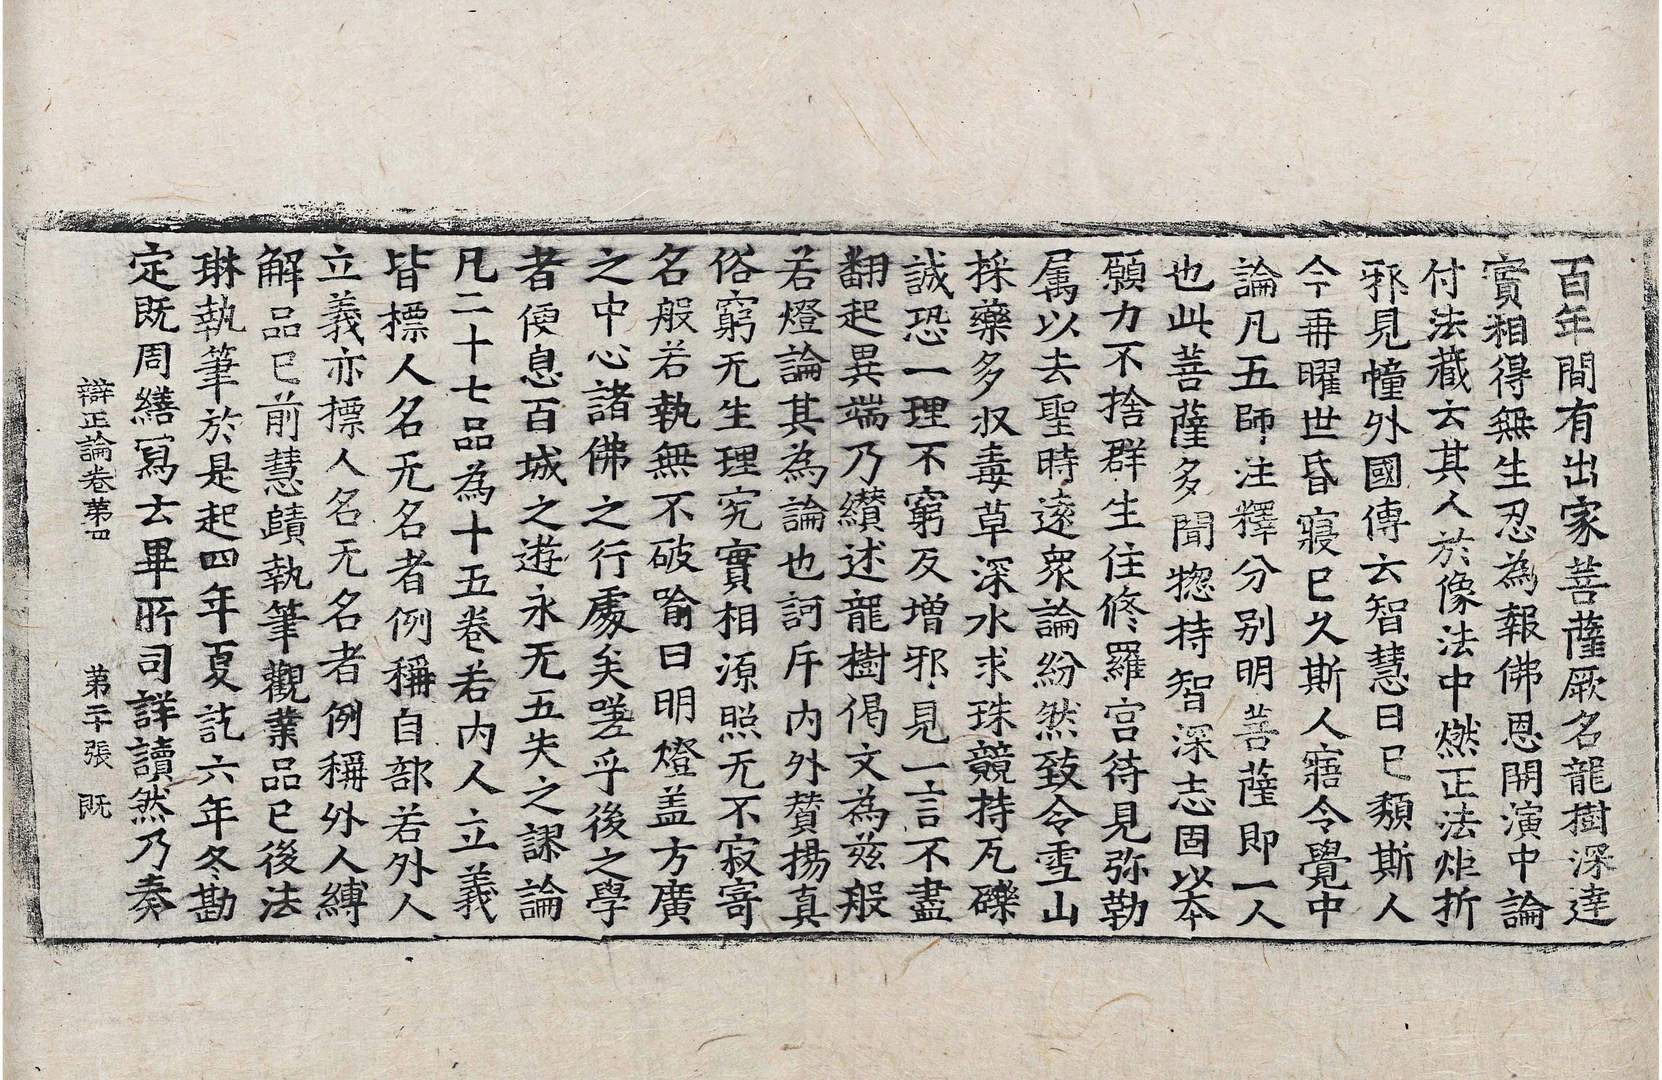 百年間有出家菩薩厥名龍樹深達
實相得無生忍為報佛恩開演中論
付法藏云其人於像法中燃正法炬折
邪見幢外國傳云智慧日已頹斯人
今再曜世昏寢已久斯人寤令覺中
論凡五師注釋分別明菩薩即一人
也此菩薩多聞揔持智深志固以本
願力不捨群生住修羅宮待見弥勒
属以去聖時遠衆論紛然致令雪山
採藥多収毒草深水求珠競持瓦礫
誠恐一理不窮反增邪見一言不盡
翻起異端乃纉述龍樹偈文為兹般
若燈論其為論也訶斥内外賛揚真
俗窮无生理究實相源照无不寂寄
名般若執無不破喻曰明燈盖方廣
之中心諸佛之行處矣嗟乎後之學
者便息百城之遊永无五失之謬論
凡二十七品為十五卷若内人立義
皆標人名无名者例稱自部若外人
立義亦標人名无名者例稱外人縛
解品已前慧賾執筆觀業品已後法
琳執筆於是起四年夏訖六年冬勘
定既周繕寫云畢所司詳讀然乃奏
辯正論卷第四 第二十張 既